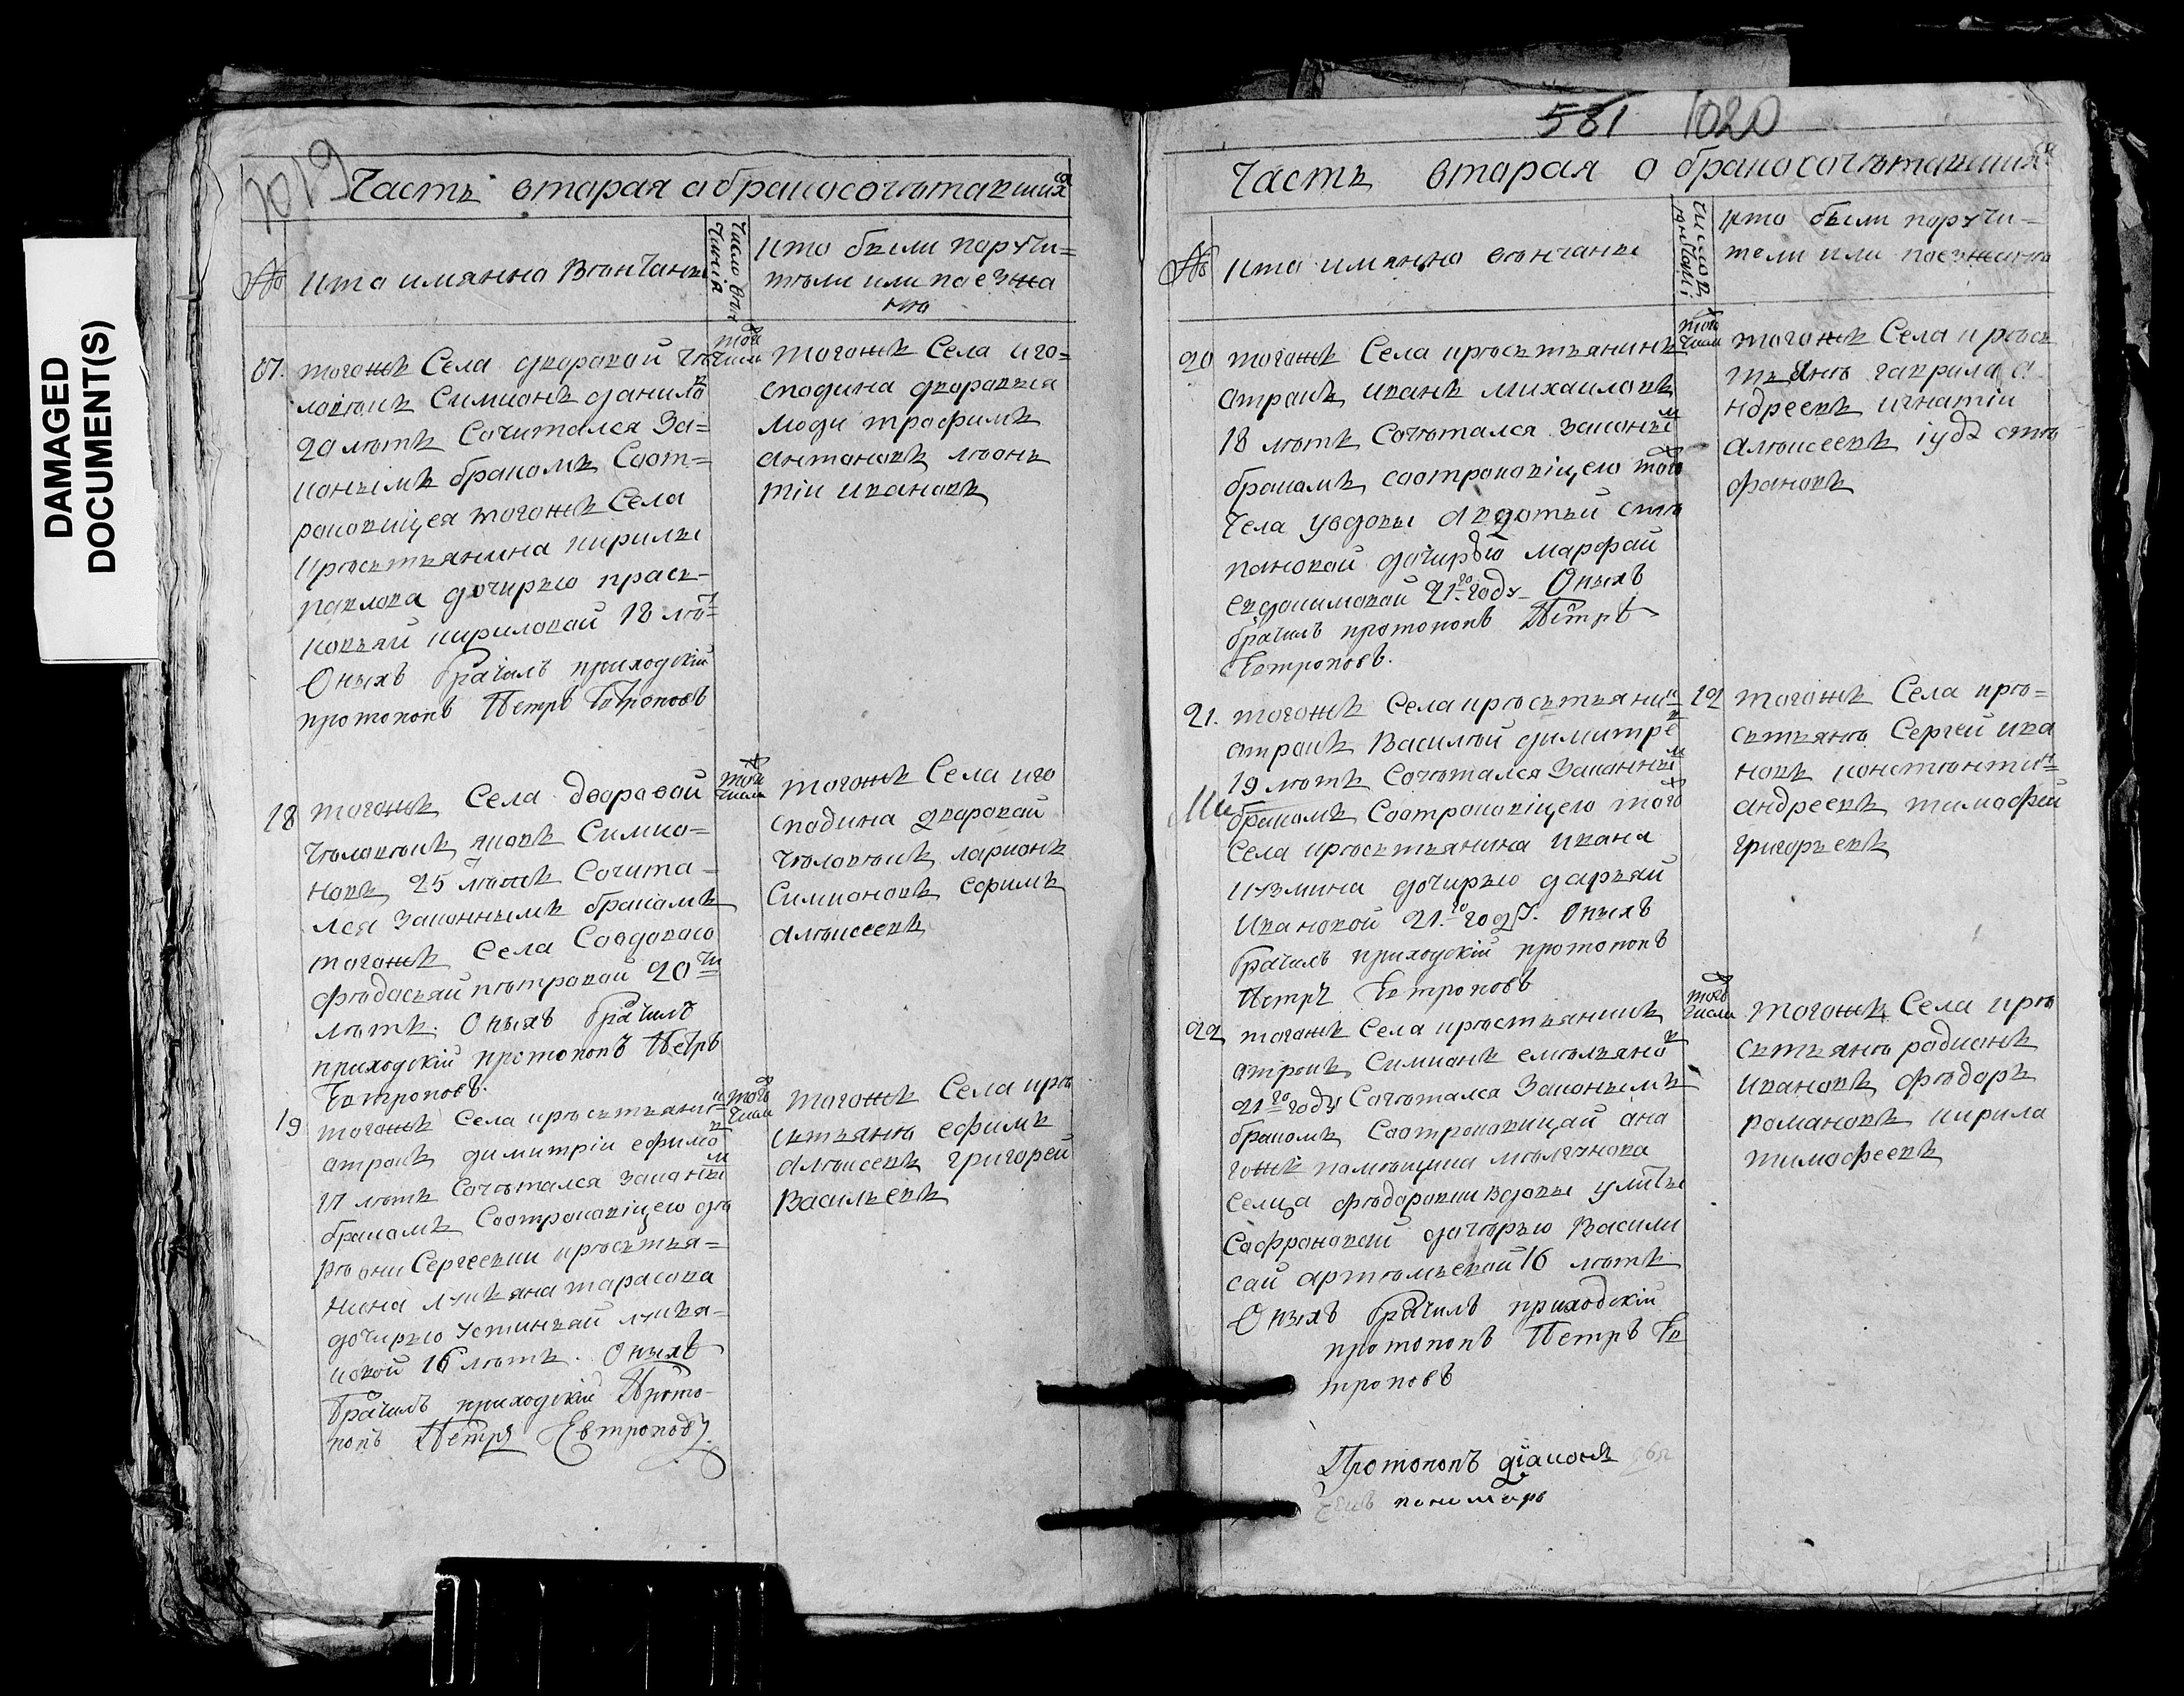 DAMAGED
DOCUMENT(S)
1019
Часть вторая о бракосочѣтавшихся
№
Кто имянно вѣнчаны
Число вѣн
чания
Кто были поручи=
тѣли или поезжа
нѣ
17.
тогожъ Села дворовой чѣ
ловѣкъ Симионъ данило
въ
20 лѣтъ Сочитался За=
конымъ бракомъ Соот=
роковицея тогожъ Села
крѣсьтьянина кирилы
павлова дочирью прась-
ковьяй кириловой 18 лѣт
Оныхъ брачилъ приходскій
протопопъ Петръ Евтроповъ
того числа
тогожъ Села иго=
сподина дворовыя
люди трофимъ
антоновъ лѣонь
тіи ивановъ
18
тогожъ Села дворовой
чѣловѣкъ яковъ Симио=
новъ 25 лѣтъ Сочита-
лся Законнымъ бракомъ
тогожъ Села Совдовою
фѣдосьяй пѣтровой 20 ти
лѣтъ. Оныхъ брачилъ
приходскій протопопъ Петръ
Евтроповъ.
того числа
тогожъ Села иго
сподина дворовой
чѣловѣкъ ларионъ
Симионовъ ефимъ
алѣксеевъ
19
тогожъ Села крѣсьтьянинъ
отрокъ димитріи ефимовъ
17 лѣтъ Сочѣтался Законым
бракомъ Соотроковіцею дѣ
рѣвни Сергеевки крѣсьтья=
нина лукьяна тарасова
дочирью устиньяй лукья-
новой 16 лѣтъ. Оныхъ
брачилъ приходскій Прото-
попъ Петръ Евтроповъ.
того числа
тогожъ Села крѣ
сьтьянѣ ефимъ
алѣксевъ григореи
Васильевъ
581 1020
Часть вторая о бракосочѣтавшихся
№
Кто имянно вѣнчаны
Кто были поручи=
тели или поезжанѣ
20
тогожъ Села крѣсьтьянинъ
отрокъ иванъ михаиловъ
18 лѣтъ Сочѣтался законым
бракомъ соотроковіцею того
Села увдовы авдотьи сте
пановой дочирью марфой
евдокимовой 21го году Оныхъ
брачилъ протопопъ Петръ
Евтроповъ.
того числа
тогожъ Села крѣсь
тьянѣ гаврила а
ндреевъ игнатіи
алѣксеевъ іуда стѣ
фановъ
21.
тогожъ Села крѣсьтьянинъ
отрокъ Василѣй димитревъ
19 лѣтъ Сочѣтался Законным
бракомъ Соотроковіцею того
Села крѣсьтьянина ивана
кузмина дочирью дарьяй
Ивановой 21.го году. Оныхъ
брачилъ приходскій протопопъ
Петръ Евтроповъ
тогожъ Села крѣ=
сьтьянѣ Сергей ива
новъ констѣнтин
андреевъ тимофей
григорьевъ
22
тогожъ Села крѣстьянинъ
отрокъ Симионъ емѣльяновъ
21го году Сочѣтался Законымъ
бракомъ Соотроковицай она
гожъ помѣщика молчанова
Селца фѣдоровки вдовы улиты
Сафроновой дочѣрью Васили
сай артѣмьевой 16 лѣтъ
Оныхъ брачилъ приходскій
протопопъ Петръ Ев
троповъ
того числа
тогожъ Села крѣ
сьтьянѣ радионъ
ивановъ фѣдоръ
романовъ кирила
тимофеевъ
Протопопъ діаконъ
пономарь